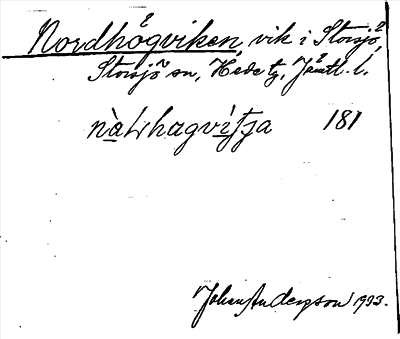 Nordhögviken, vik i Storsjö,
Storsjö sn, Hede tg, Jämtl. l.
nàLhagvìtja 181
Johan Anderson 1933.